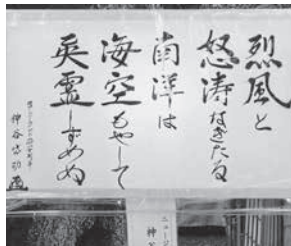 烈風と
怒涛なぎたる
南洋は
海空もやして
英霊しずめぬ
神谷
ニュー
神谷